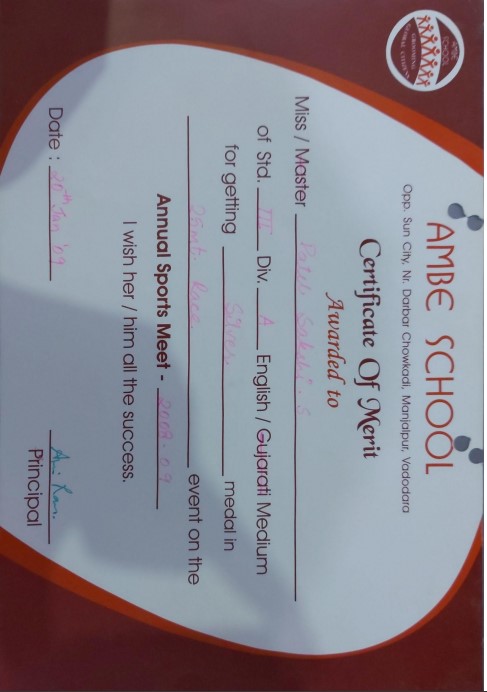 AMBE SCHOOL
Opp. Sun City, Nr. Darbar Chowkadi, Manjalpur, Vadodara
Certificate Of Merit
Awarded to
Miss / Master Patel Sakshi . S
of Std. III Div. A English / Gujarati Medium
for getting Silver medal in
25 mt. Race event on the
Annual Sports Meet - 2008-09
I wish her / him all the success.
Date : 20th Jan '09
Principal